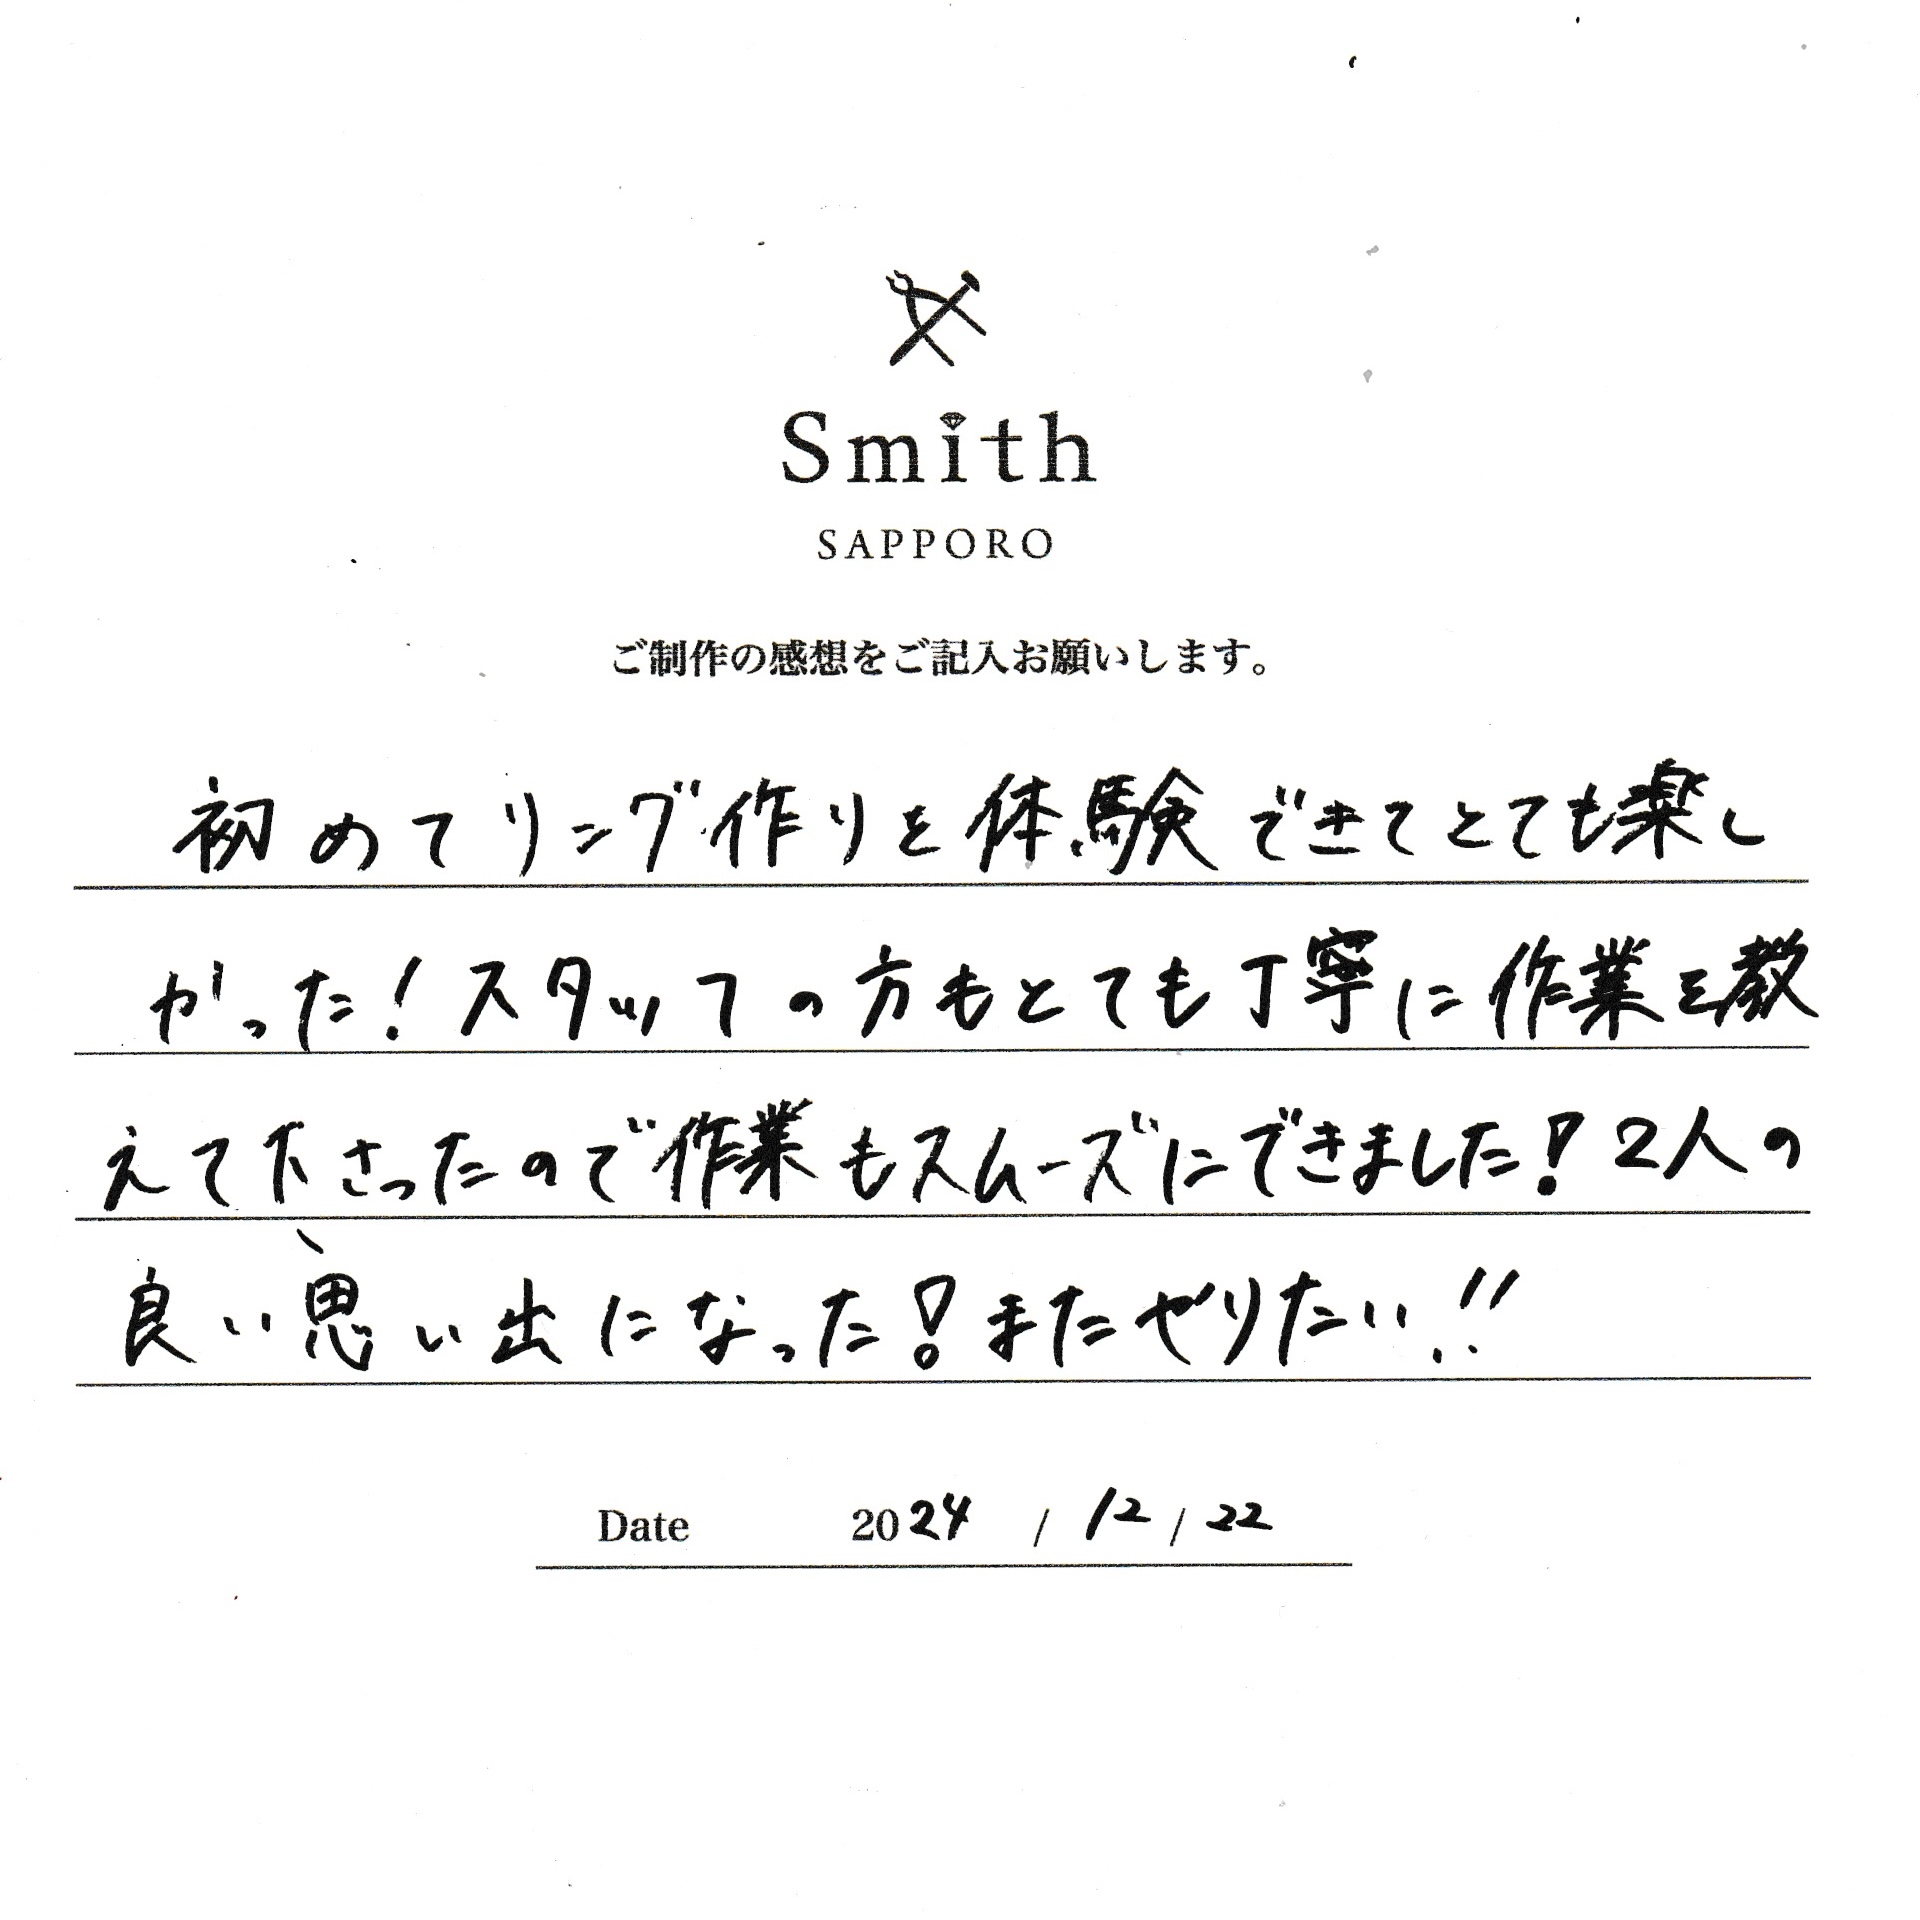 Smith
SAPPORO
ご制作の感想をご記入お願いします。
初めてリング作りを体験できてとても楽し
かった!スタッフの方もとても丁寧に作業を教
えて下さったので作業もスムーズにできました!2人の
良い思い出になった!またやりたい!!
Date 2024 / 12 / 22